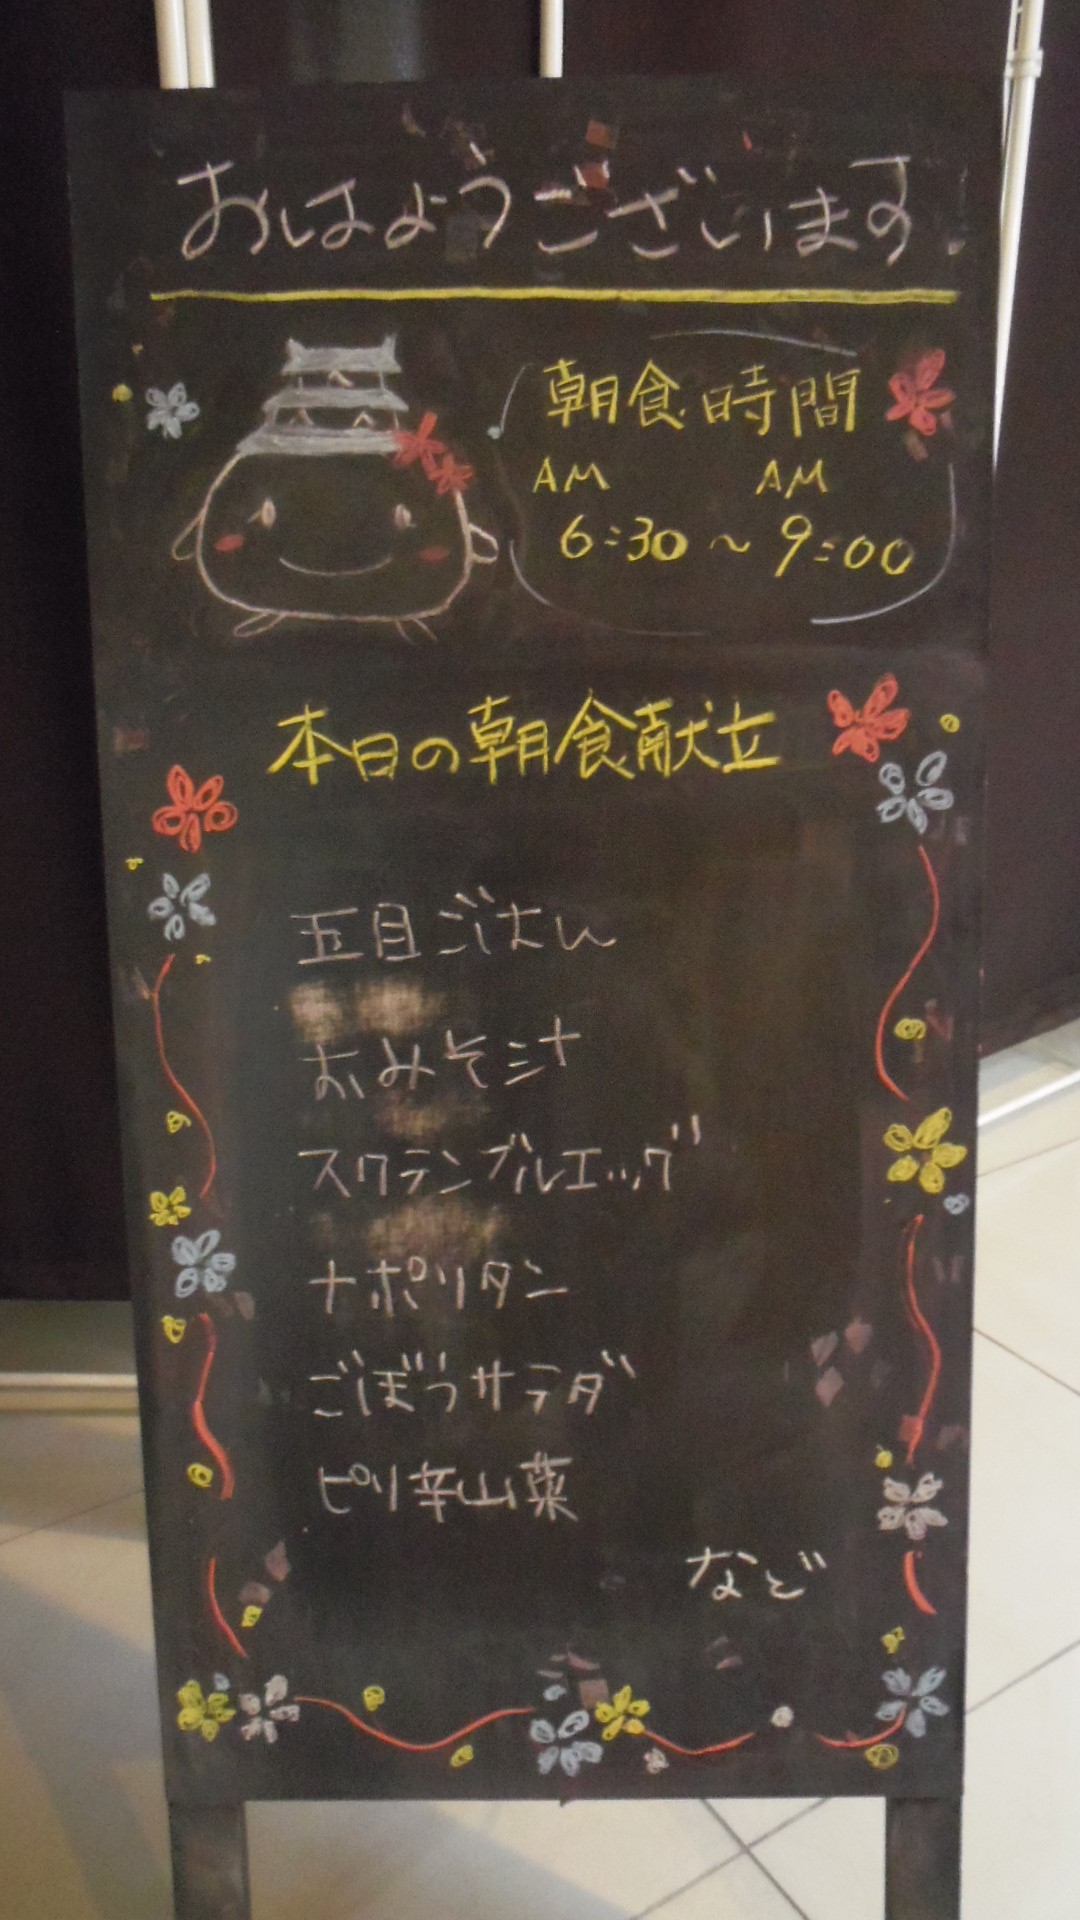 おはようございます.
朝食時間
AM AM
6:30～9:00
本日の朝食献立
五目ごはん
おみそ汁
スクランブルエッグ
ナポリタン
ごぼうサラダ
ピリ辛山菜
など